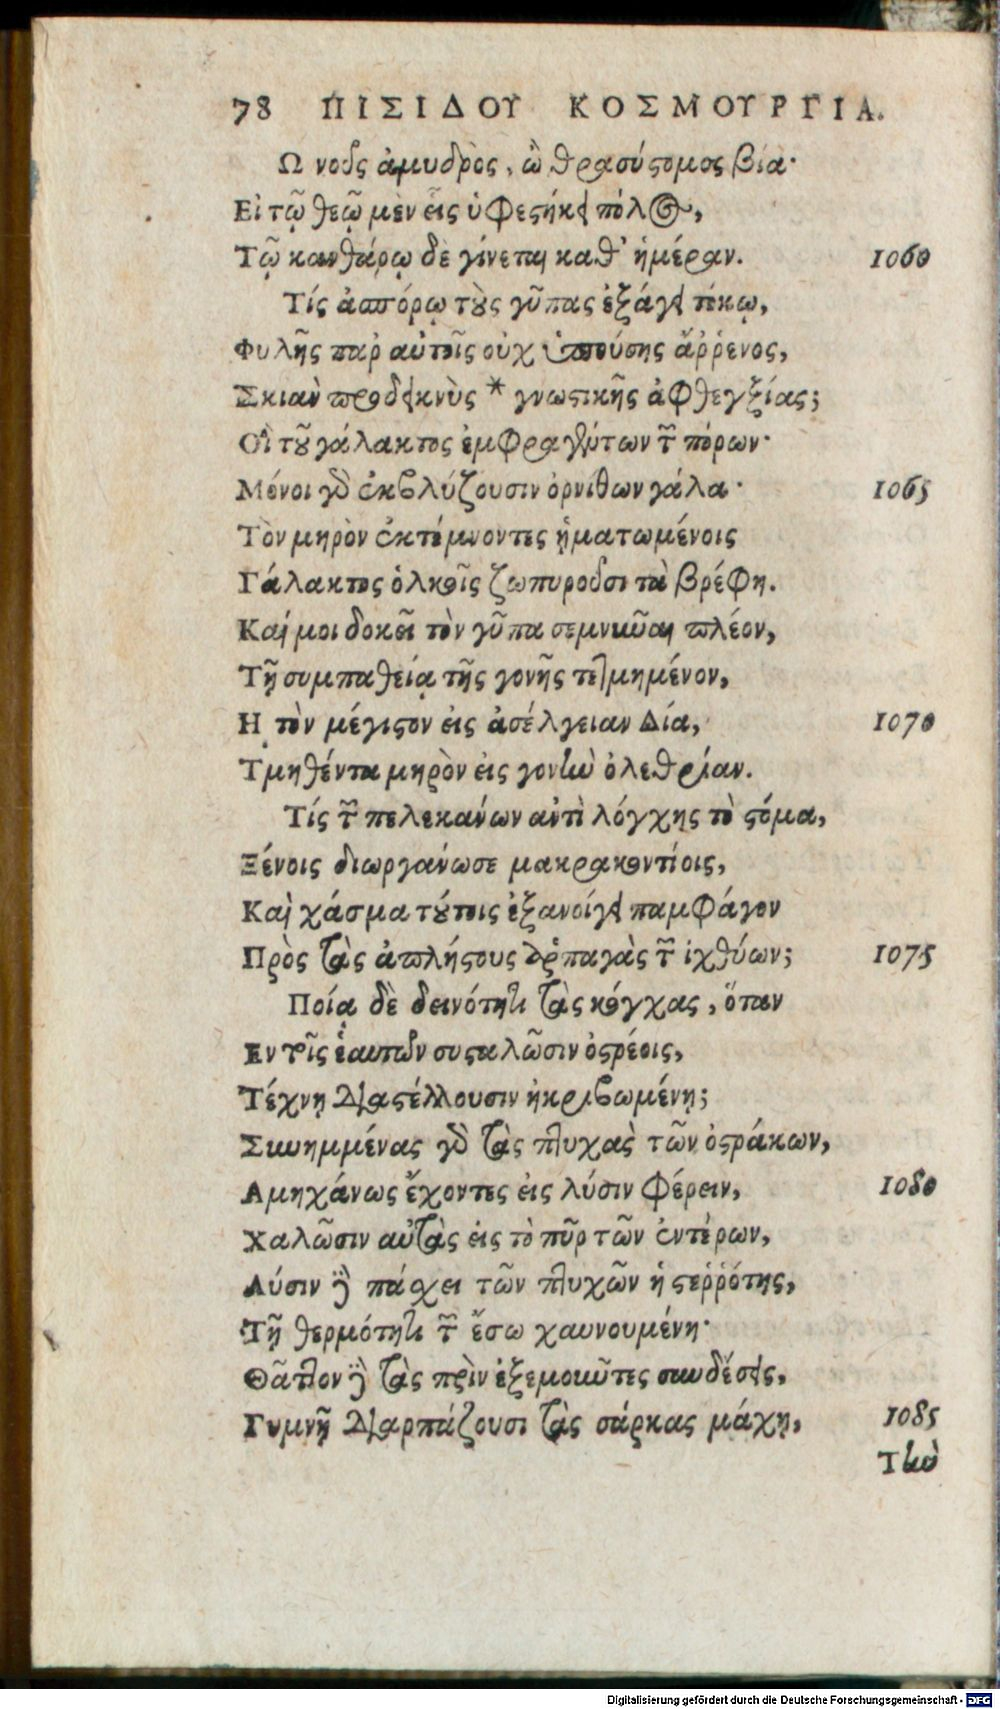 78 ΠΙΣΙΔΟΥ ΚΟΣΜΟΥΡΓΙΑ.
Ω νοῦς ἀμυδρὸς, ὦ θρασύστομος βία·
Εἰ τῷ θεῷ μὲν εἷς ὑφεστήκει πόλος,
Τῷ κανθάρῳ δὲ γίνεται καθ' ἡμέραν. 1060
Τίς ἀσπόρῳ τοὺς γῦπας ἐξάγει τόκῳ,
Φυλῆς παρ αὐτοῖς οὐχ ὑπούσης ἄῤῥενος,
Σκιὰν προδεικνὺς * γνωστικῆς ἀφθεγξίας;
Οἳ τοῦ γάλακτος ἐμφραγέντων τῶν πόρων·
Μένοι γὰρ ἐκβλύζουσιν ὀρνίθων γάλα· 1065
Τὸν μηρὸν ἐκτέμνοντες ᾑματωμένοις
Γάλακτος ὁλκοῖς ζωπυροῦσι τὰ βρέφη.
Καί μοι δοκεῖ τὸν γῦπα σεμνιοῦναι πλέον,
Τῇ συμπαθείᾳ τῆς γονῆς τετμημένον,
Η τὸν μέγιστον εἰς ἀσέλγειαν Δία, 1070
Τμηθέντα μηρὸν εἰς γονὴν ὀλεθρίαν.
Τίς τῶν πελεκάνων ἀντὶ λόγχης τὸ στόμα,
Ξένοις διωργάνωσε μακρακοντίοις,
Καὶ χάσμα τούτοις ἐξανοίγει παμφάγον
Πρὸς τὰς ἀπλήστους ἁρπαγὰς τῶν ἰχθύων; 1075
Ποίᾳ δὲ δεινότητι τὰς κόγχας, ὅταν
Εν τοῖς ἑαυτῶν συσταλῶσιν ὀστρέοις,
Τέχνῃ διαστέλλουσιν ἠκριβωμένῃ;
Συνημμένας γὰρ τὰς πτυχὰς τῶν ὀστράκων,
Αμηχάνως ἔχοντες εἰς λύσιν φέρειν, 1080
Χαλῶσιν αὐτὰς εἰς τὸ πῦρ τῶν ἐντέρων,
Λύσιν δὲ πάσχει τῶν πτυχῶν ἡ στεῤῥότης,
Τῇ θερμότητι τῶν ἔσω χαυνουμένη·
Θᾶττον δὲ τὰς πρὶν ἐξεμοῦντες συνδέσεις,
Γυμνῇ διαρπάζουσι τὰς σάρκας μάχῃ, 1085
Τὴν
Digitalisierung gefördert durch die Deutsche Forschungsgemeinschaft - DFG